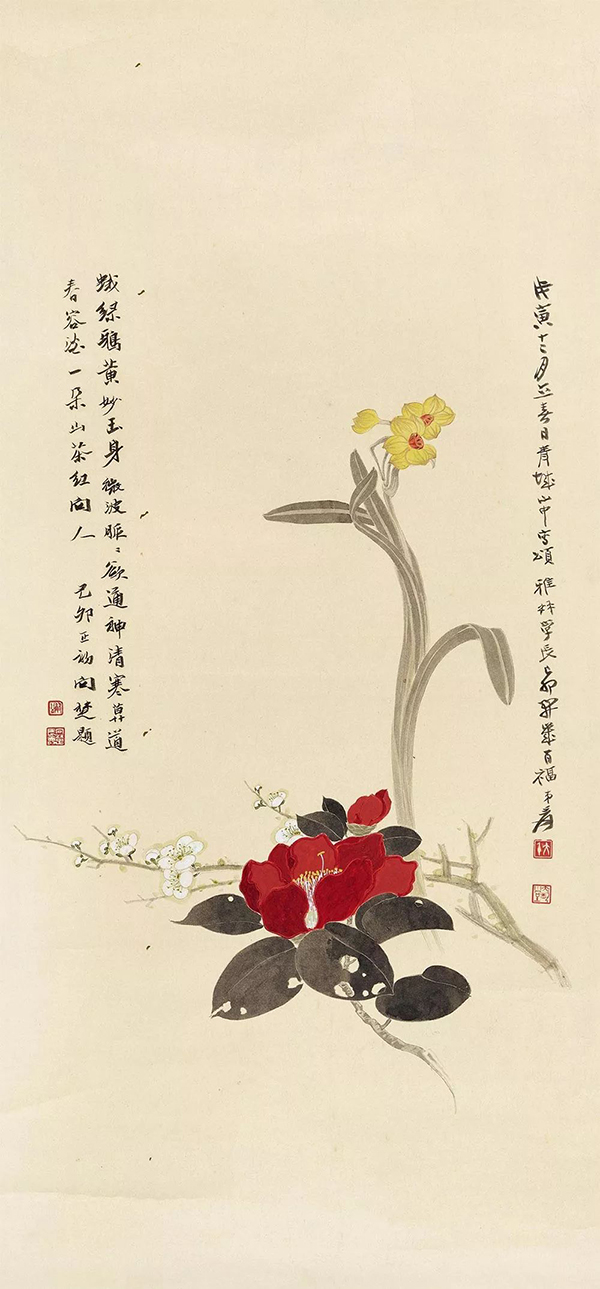 戊寅十二月立春日青城山中寫頌 雅林學長己卯開歲百福 弟爰
蛾綠鴉黃妙玉身微波脈〻欲通神清寒莫道
春容澹一朵山茶紅向人 己卯正初向楚題